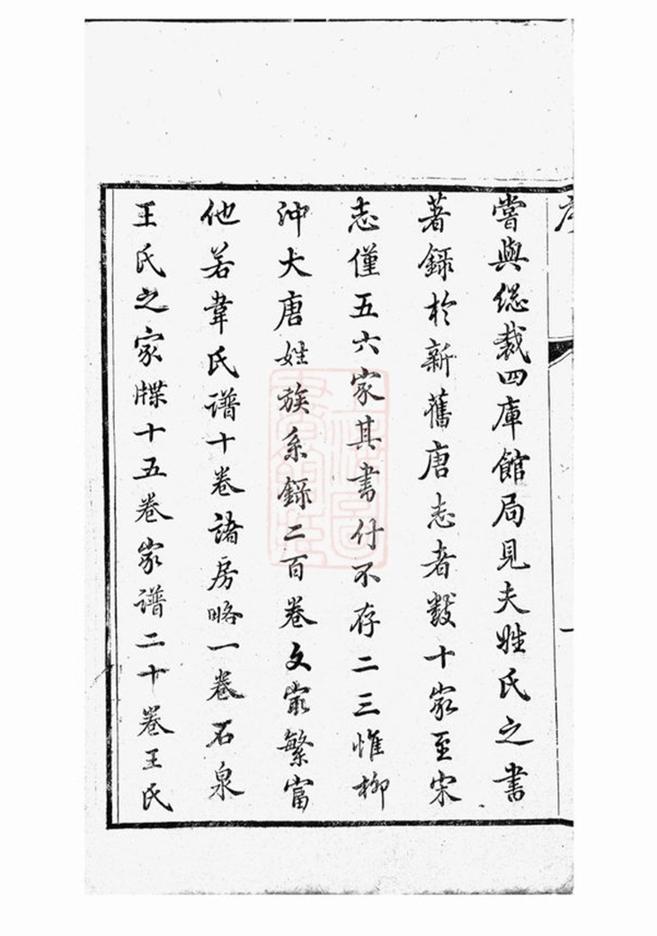 嘗與総裁四庫館局見夫姓氏之書
著録於新舊唐志者數十家至宋
志僅五六家其書什不存二三惟柳
沖大唐姓族系録二百卷文冣繁富
他若韋氏譜十卷諸房略一卷石泉
王氏之家牒十五卷家譜二十卷王氏